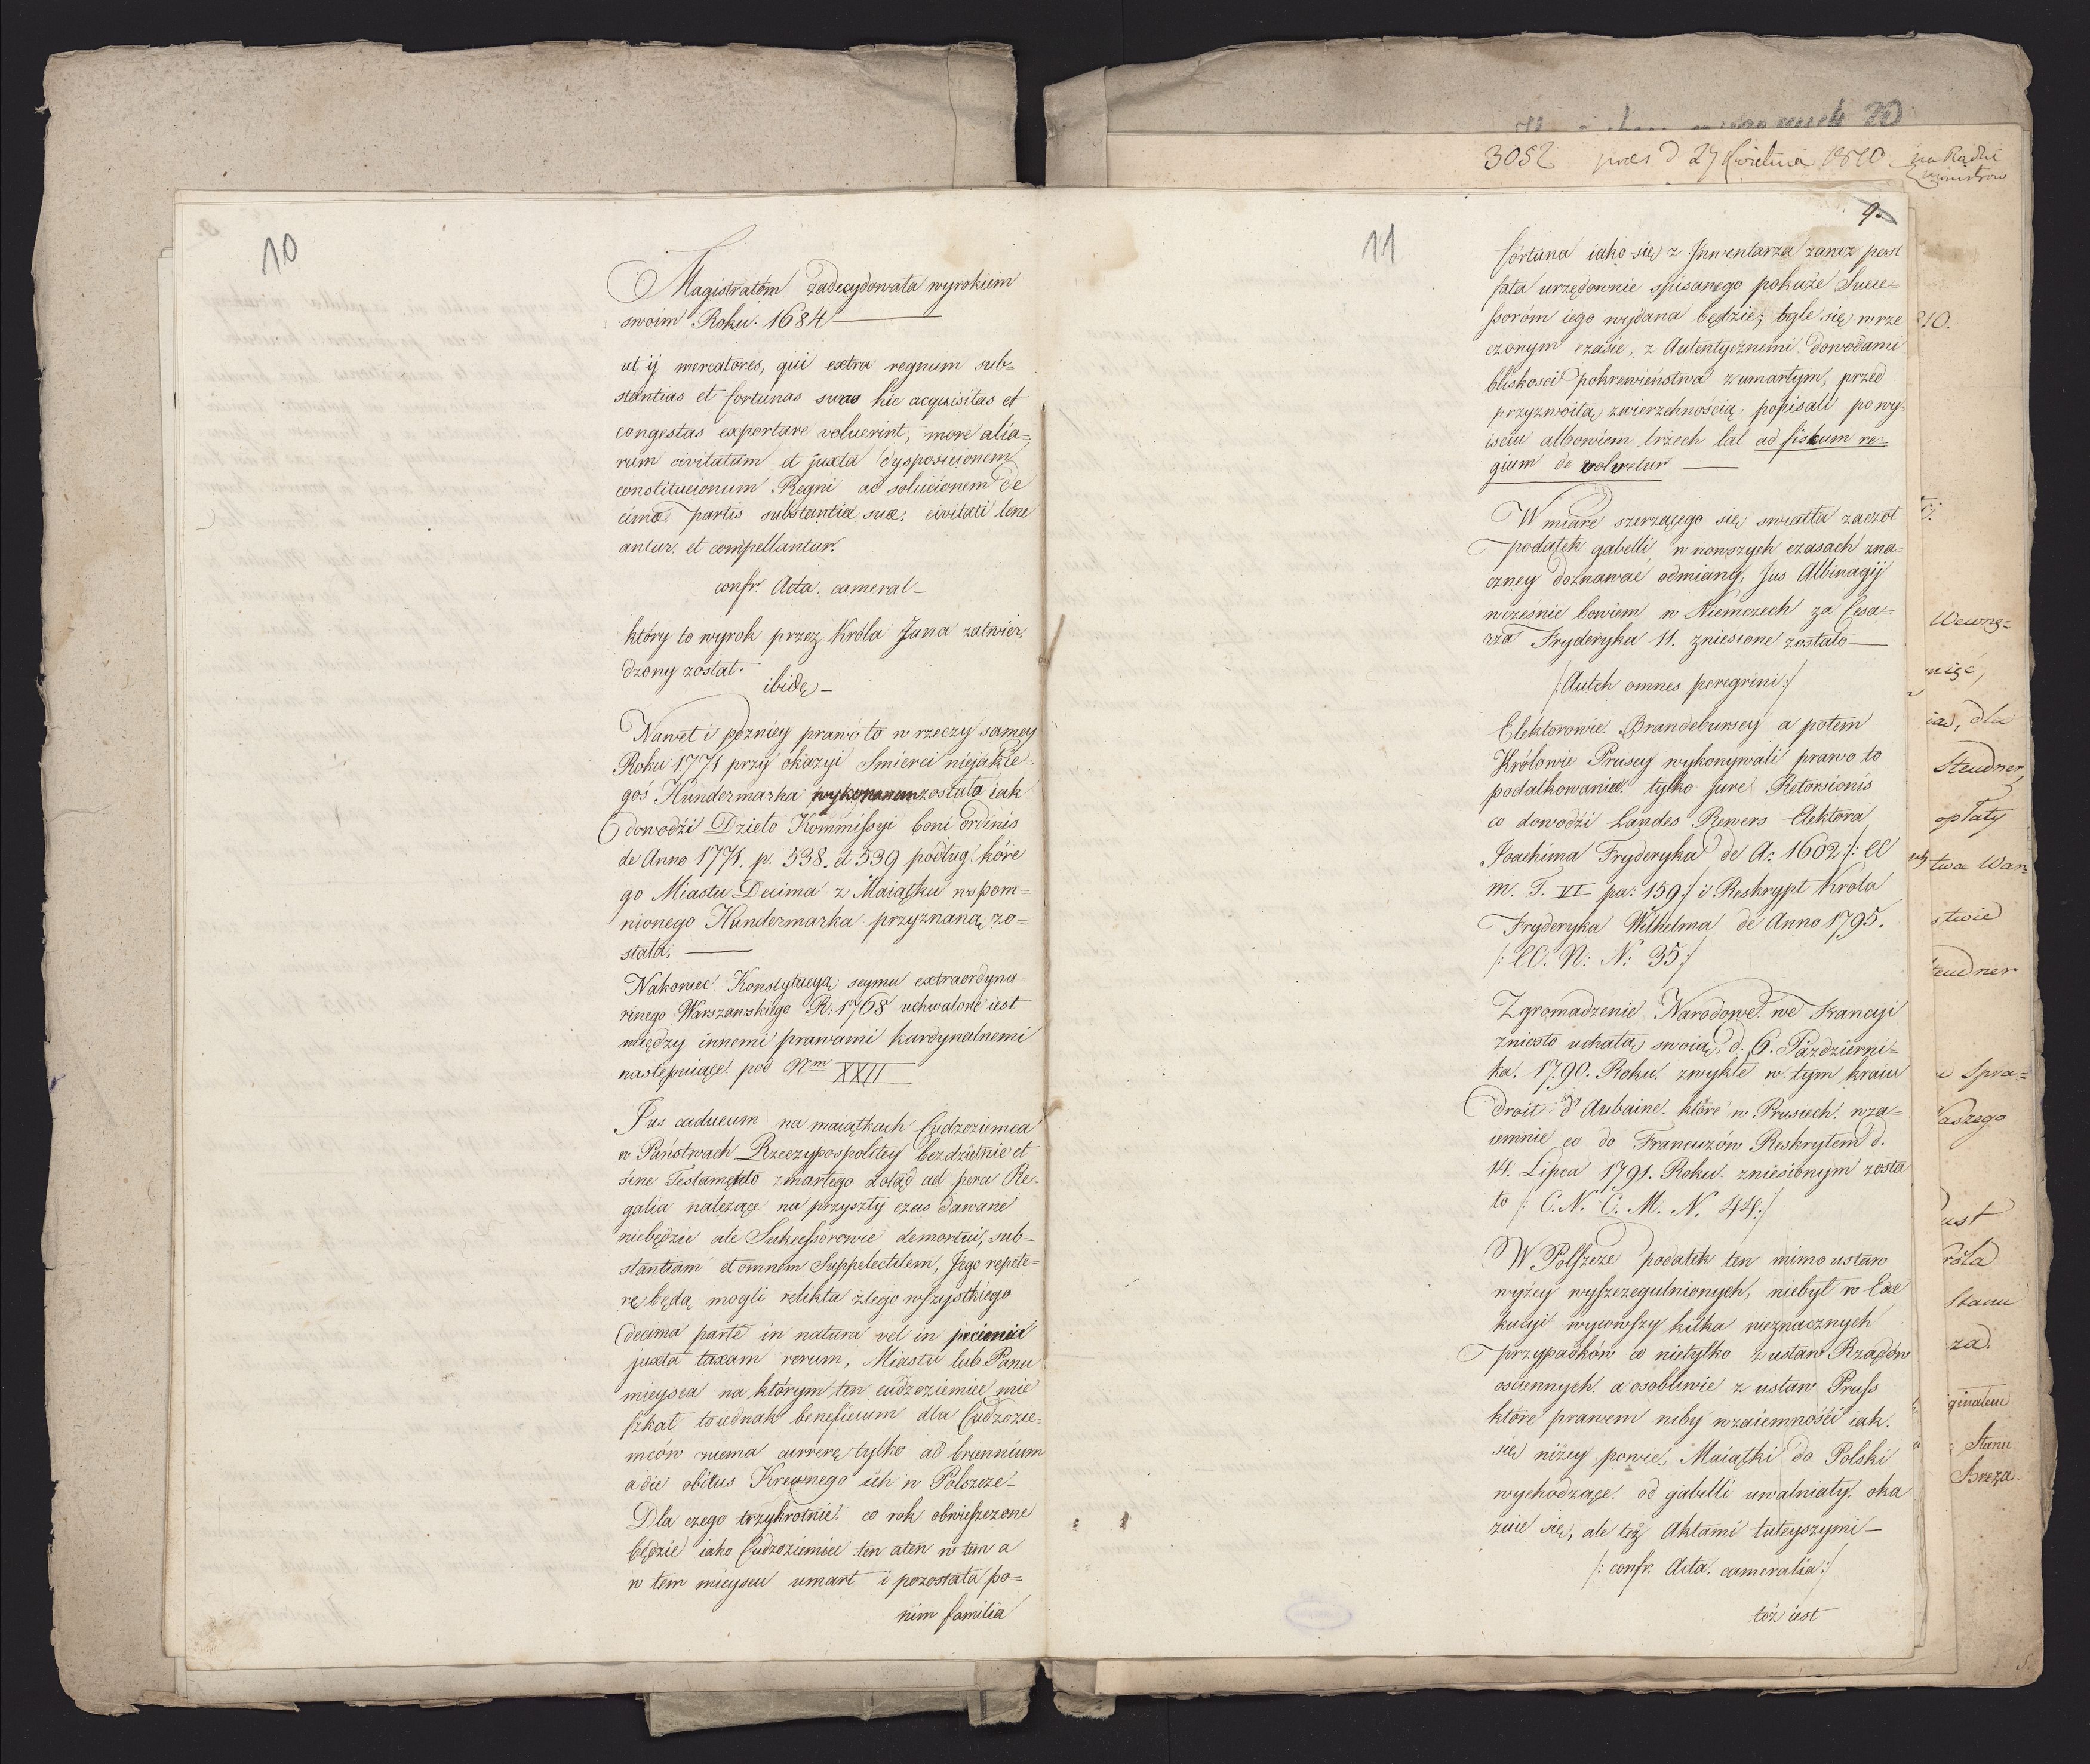 10
Magistratóm zadecydowała wyrokiem
swoim Roku. 1684
ut ij mercatores, qui extra regnum sub=
stantias et fortunas suas hic acquisitas et
congestas exportare voluerint, more alia=
rum civitatum et juxta dysposicionem
constitucionum Regni ad solucionem de
cimæ partis substantiæ suæ civitati tene
antur. et compellantur.
confr. Acta. cameral_
który to wyrok przez Króla Jana zatwier
dzony został.
ibidę_
Nawet i pózniey prawo to w rzeczy samey
Roku 1771 przy okazyi Smierci niejakie=
goś Hundermarka wykonanem zostało iak
dowodzi Dzieło Kommissyi boni ordinis
de Anno 1771. p. 538. et 539 podług kóre
go Miastu Decima z Maiątku wspom=
nionego Hundermarka przyznaną zo=
stała.
Nakoniec Konstytucyą seymu extraordyna=
rinego Warszawskiego R: 1768 uchwalone iest
między innemi prawami kardynalnemi
następuiące pod Nm XXII
Jus caducum na maiątkach Cudzoziemca
w Państwach Rzeczypospolitey bezdzietnie et
sine Testamento zmarłego dotąd ad pera Re=
galia należące na przyszły czas dawane
niebędzie ale Sukcessorowie demortui, sub=
stantiam et omnem Suppelectilem, Jego repete=
rę będą mogli relikta z tego wszystkiego
decima parte in natura vel in pecienia
juxta taxam rerum, Miastu lub Panu
mieysca na którym ten cudzoziemiec mie
szkał to iednak beneficium dla Cudzozie=
mców niema currerę tylko ad briennium
a die obitus Krewnego ich w Polszcze_
Dla czego trzykrotnie co rok obwieszczone
będzie iako Cudzoziemiec ten a ten w tem a
w tem mieyscu umarł i pozostała po=
nim familia
3052 pres d 27 Kwietnia 1810 na Radzie
Ministrow
11
9.
fortuna iako się z Inwentarza zaraz post
fata urzędownie spisanego pokaże Succe=
ssoróm iego wydana będzie; byle się w rze
czonym czasie, z Autentycznemi dowodami
bliskosci pokrewieństwa z umarłym, przed
przyzwoitą zwierzchnością popisali po wy
isciu albowiem trzech lat ad fiskum re=
gium de volwetur
W miarę szerzącego się swiatła zaczoł
podatek gabelli w nowszych czasach zna=
czney doznawać odmiany, Jus Albinagij
wcześnie bowiem w Niemczech za Cesa=
rza Fryderyka II. zniesione zostało
/:Auth omnes peregrini:/
Elektorowie Brandeburscy a potem
Królowie Pruscy wykonywali prawo to
podatkowania tylko jure Retorsionis
co dowodzi Landes Rewers Elektora
Joachima Fryderyka de A: 1602 /: CC
m. T. VI pa: 159:/ i Reskrypt Króla
Fryderyka Wilhelma de Anno 1795.
/: CC. N: N: 35:/
Zgromadzenie Narodowe we Francyi
zniosło uchałą swoią d. 6. Pażdzierni=
ka. 1790. Roku. zwykłe w tym kraiu
droit d'Aubaine. które w Prusiech. wza=
iemnie co do Francuzów Reskrytem d.
14. Lipca 1791. Roku. zniesionym zosta
ło /: C. N. C. M. N. 44:/
W Polszcze podatek ten mimo ustaw
wyżey wyszczegulnionych, niebył w Exe
kucyi wyiowszy kilka nieznacznych
przypadków co nietylko z ustaw Rządów
osciennych a osobliwie z ustaw Pruss
które prawem niby wzaiemności iak
się niżey powie, Maiątki do Polski
wychodzące od gabelli uwalniały oka
zuie się, ale też Aktami tuteyszymi_
/: confr. Acta. cameralia:/
toż iest
810.
Wewnę=
nięć,
ias, dla
Steudner,
opłaty
twa War=
stwie
teudner
Spra=
aszego
ust
róla
Stanu
za.
ginałem
Stanu
Breza.